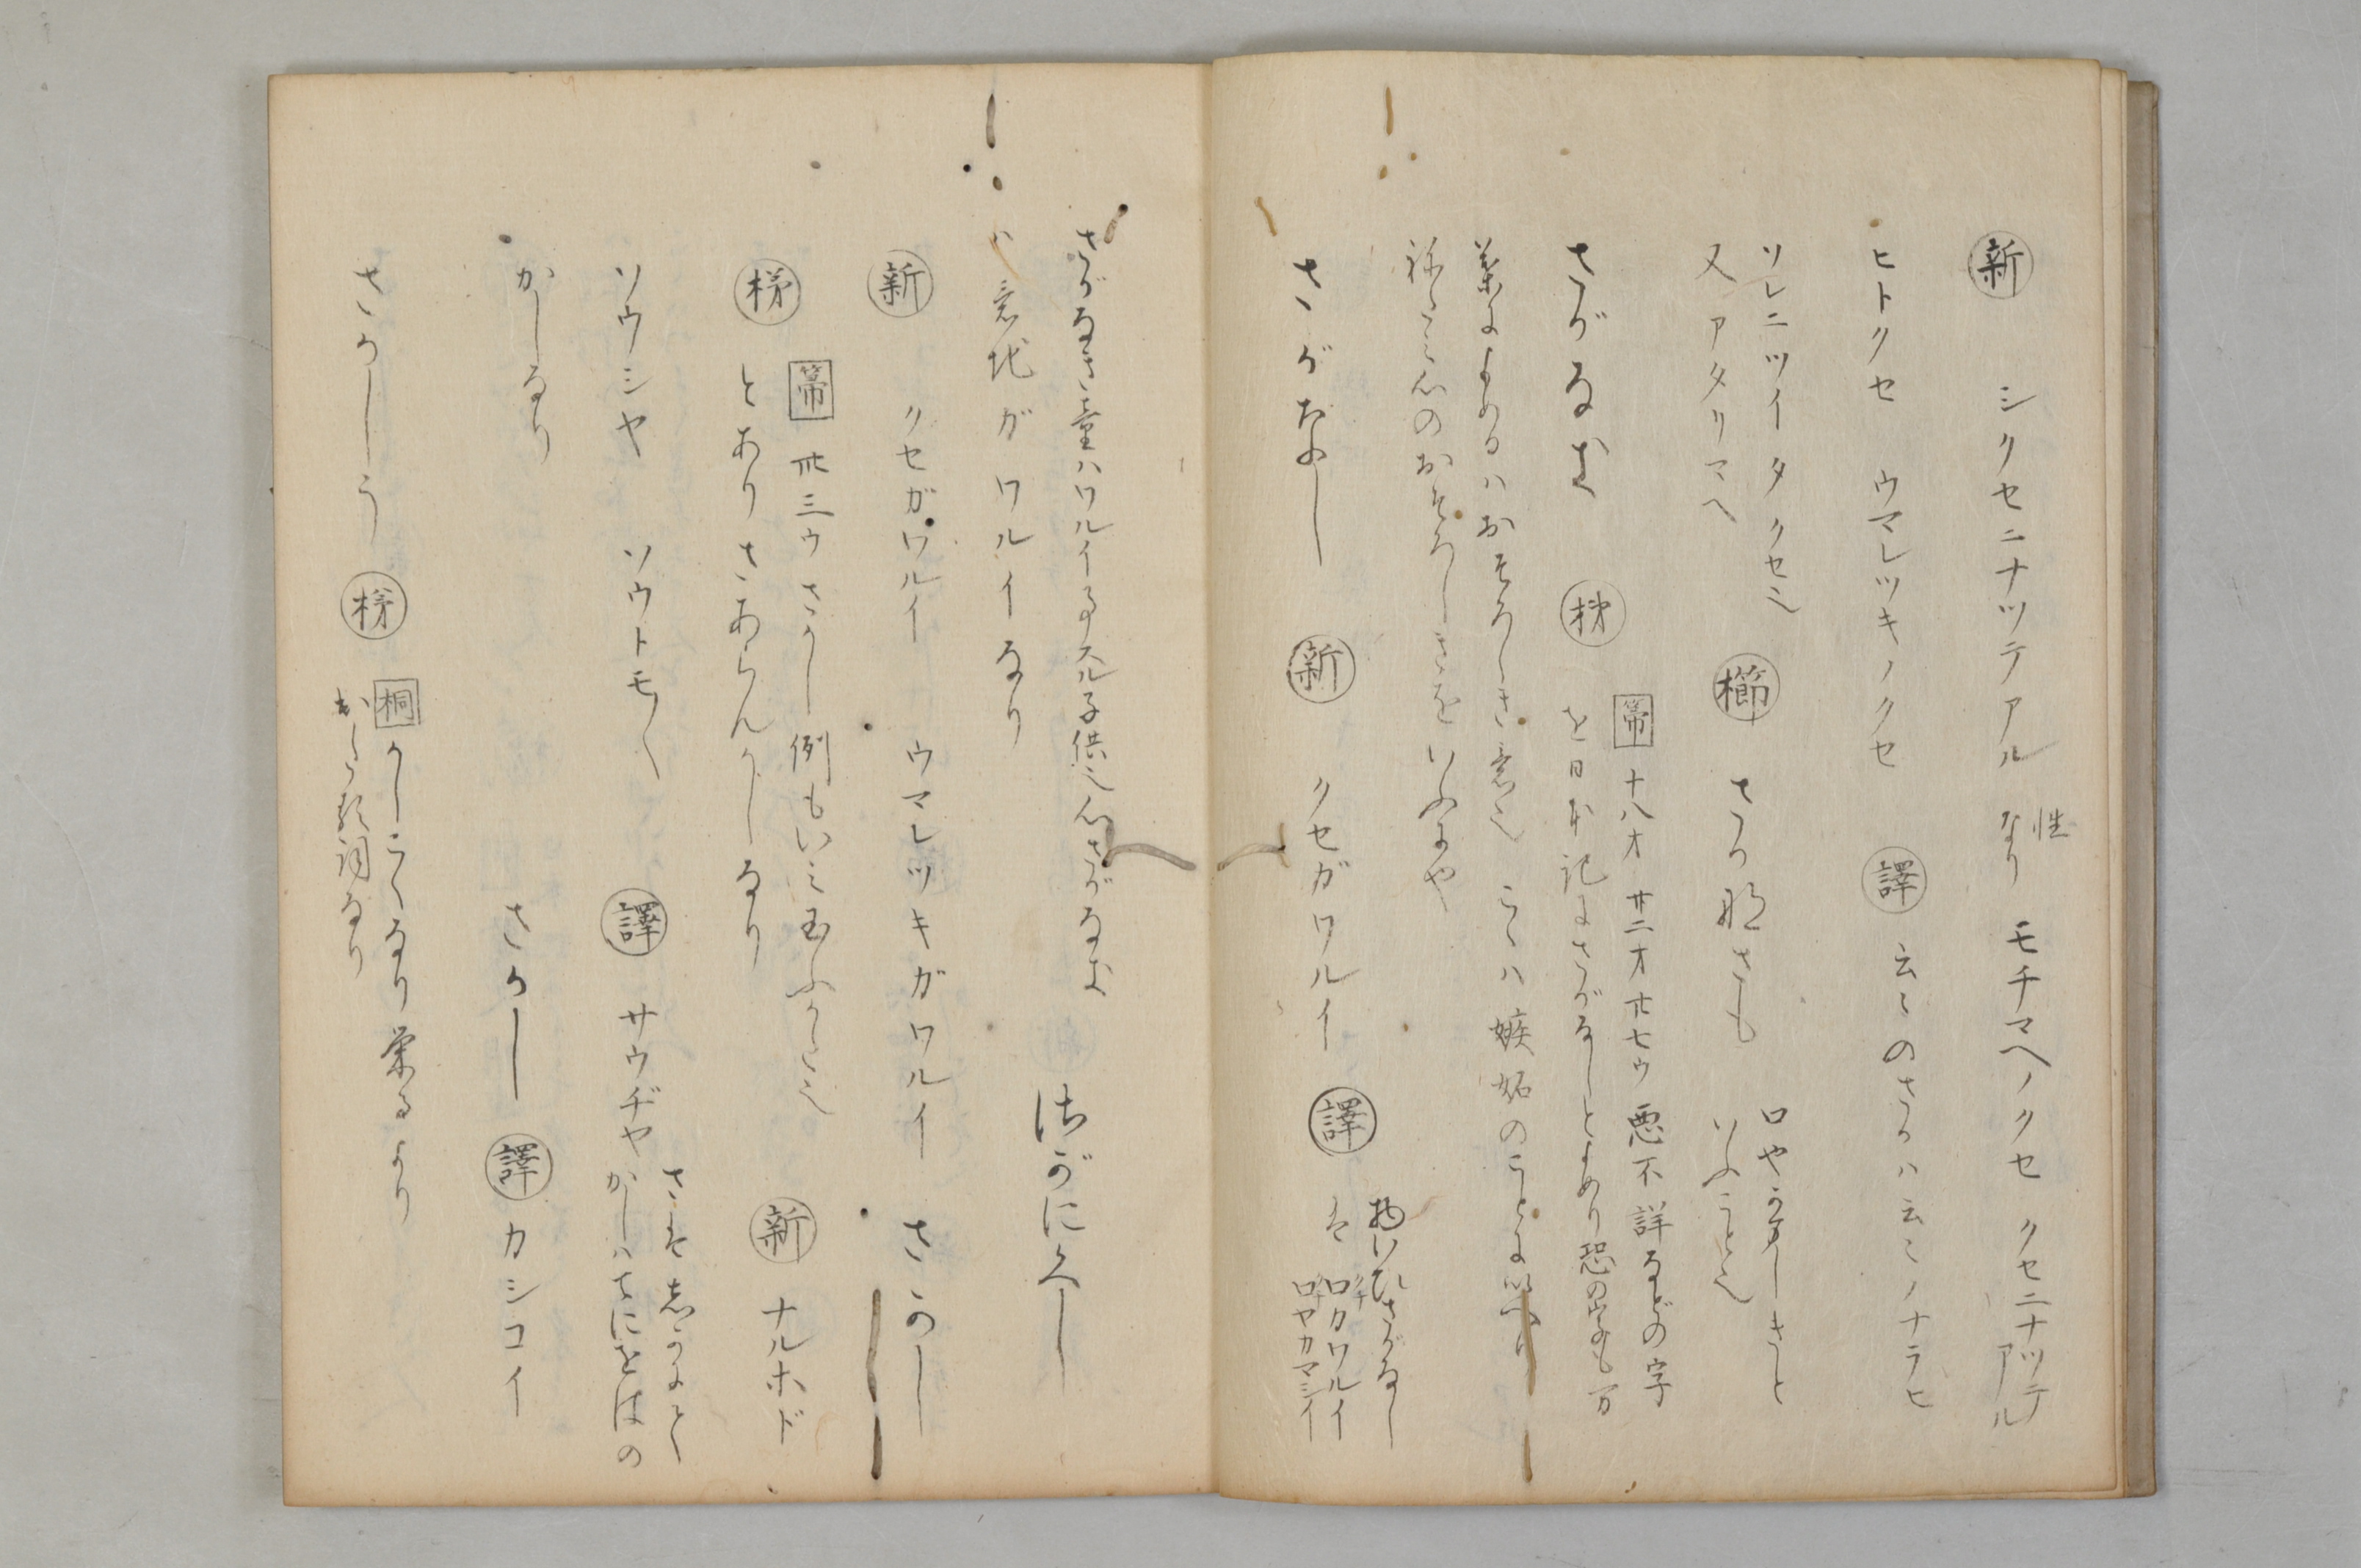 新 シクセニナツテアル 性なり モチマヘノクセ クセニナツテアル
ヒトクセ ウマレツキノクセ 譯 云〻のさかハ云〻ノナラヒ
ソレニツイタクセ也
又アタリマヘ 櫛 さか那さも 口やかましきと
いふこと也
さがなき 帚 十八オ 廿二オ 卅七ウ 悪不詳などの字
を日本記にさがなしとよめり恐の字をも万
葉によめるハおそろしき意也 こゝハ嫉妬のことにいへり
心のおそろしきをいふにや
さがなし 新 クセガワルイ 譯 物いひさがなし
は 口ガワルイ
口ヤカマシイ
さがなき童ハワルイ事スル子供也 心さがなき
ハ意地ガワルイなり さがにくし
新 クセガワルイ ウマレツキガワルイ さかし
帚 卅三ウ さかし例もいみ玉ふかと也
とありさあらんかしなり 新 ナルホド
ソウシヤ ソウトモ〱 譯 サウヂヤ さは志かにとく
かしハてにをはの
かしなり さかし 譯 カシコイ
さかしう 桐 かしこくなり 栄るより
詞なり